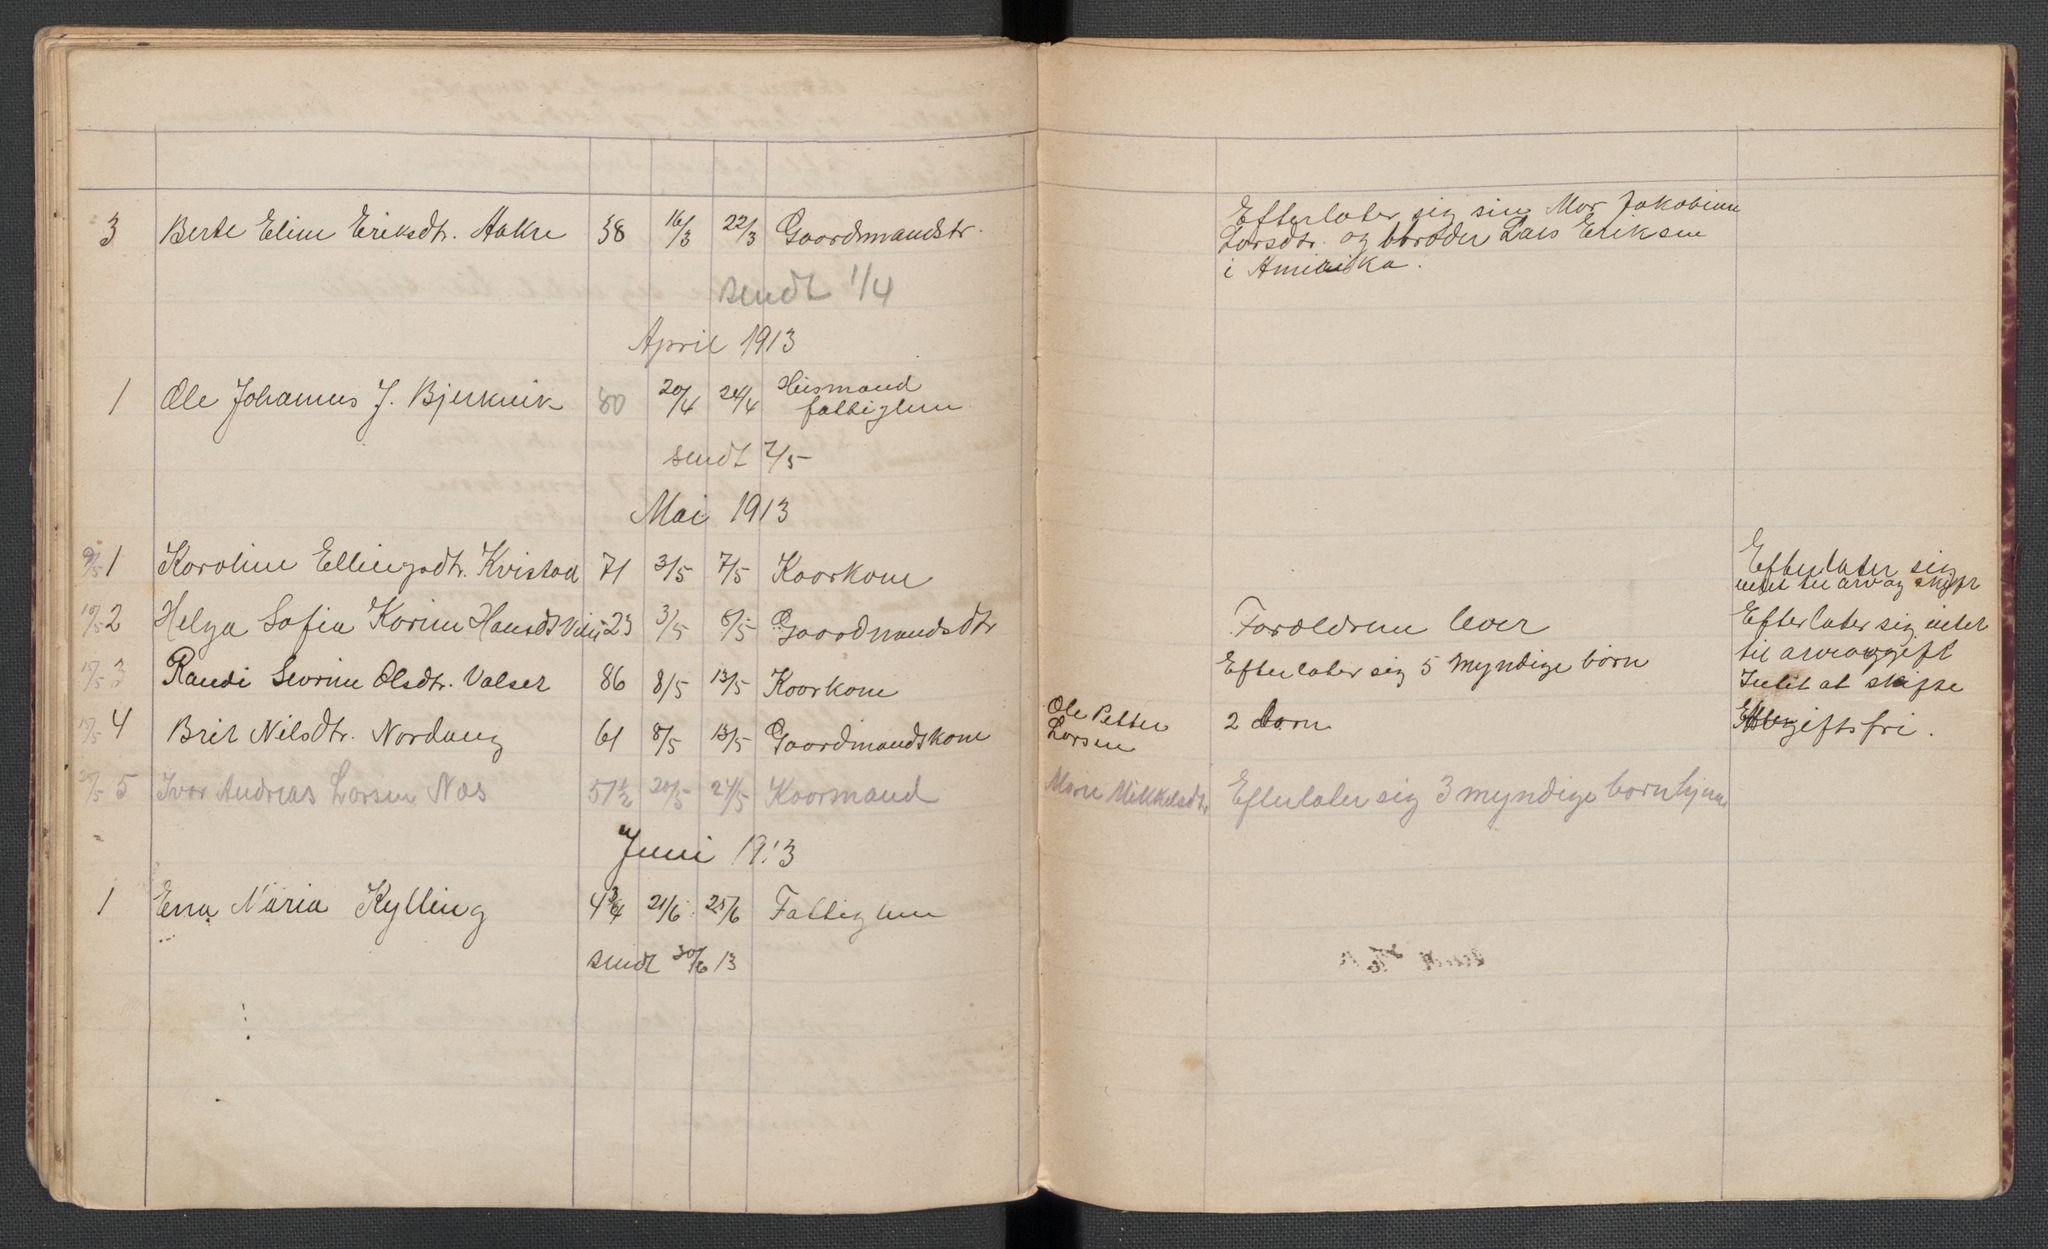 3 Berte Eline Eriksdtr. Aakre 38 16/3 22/3 Gaardmandstr. Efterlater sig sin Mor Jakobine
Larsdtr. og broder Lars Eriksen
i Amerika.
sendt 1/4
April 1913
1 Ole Johannes J. Bjerkevik 80 20/4 24/4 Husmand
fattiglem
sendt 7/5
Mai 1913
9/5 1 Karoline Ellingsdtr. Kvistad 71 3/5 7/5 Kaarkone Efterlater sig
intet til arv og skifte
10/5 2 Helga Sofia Karine Hansdt 23 3/5 8/5 Gaardmandsdtr Foræeldrene lever Efterlater sig intet
til arveavgift
15/5 3 Randi Sevrine Olsdtr. Valset 86 8/5 13/5 Kaarkone Efterlater sig 5 myndige børn Intet at skifte
15/5 4 Brit Nilsdtr. Nordang 61 8/5 13/5 Gaardmandskone Ole Petter
Larsen 2 barn giftsfri.
5 Ivar Andreas Larsen Næs 51 1/2 20/5 27/5 Kaarmand Marie Mikkelsdtr Efterlater sig 3 myndige børn
Juni 1913
1 Erna Maria Kylling 4 3/4 21/6 25/6 Fattiglem
sendt 30/6 13